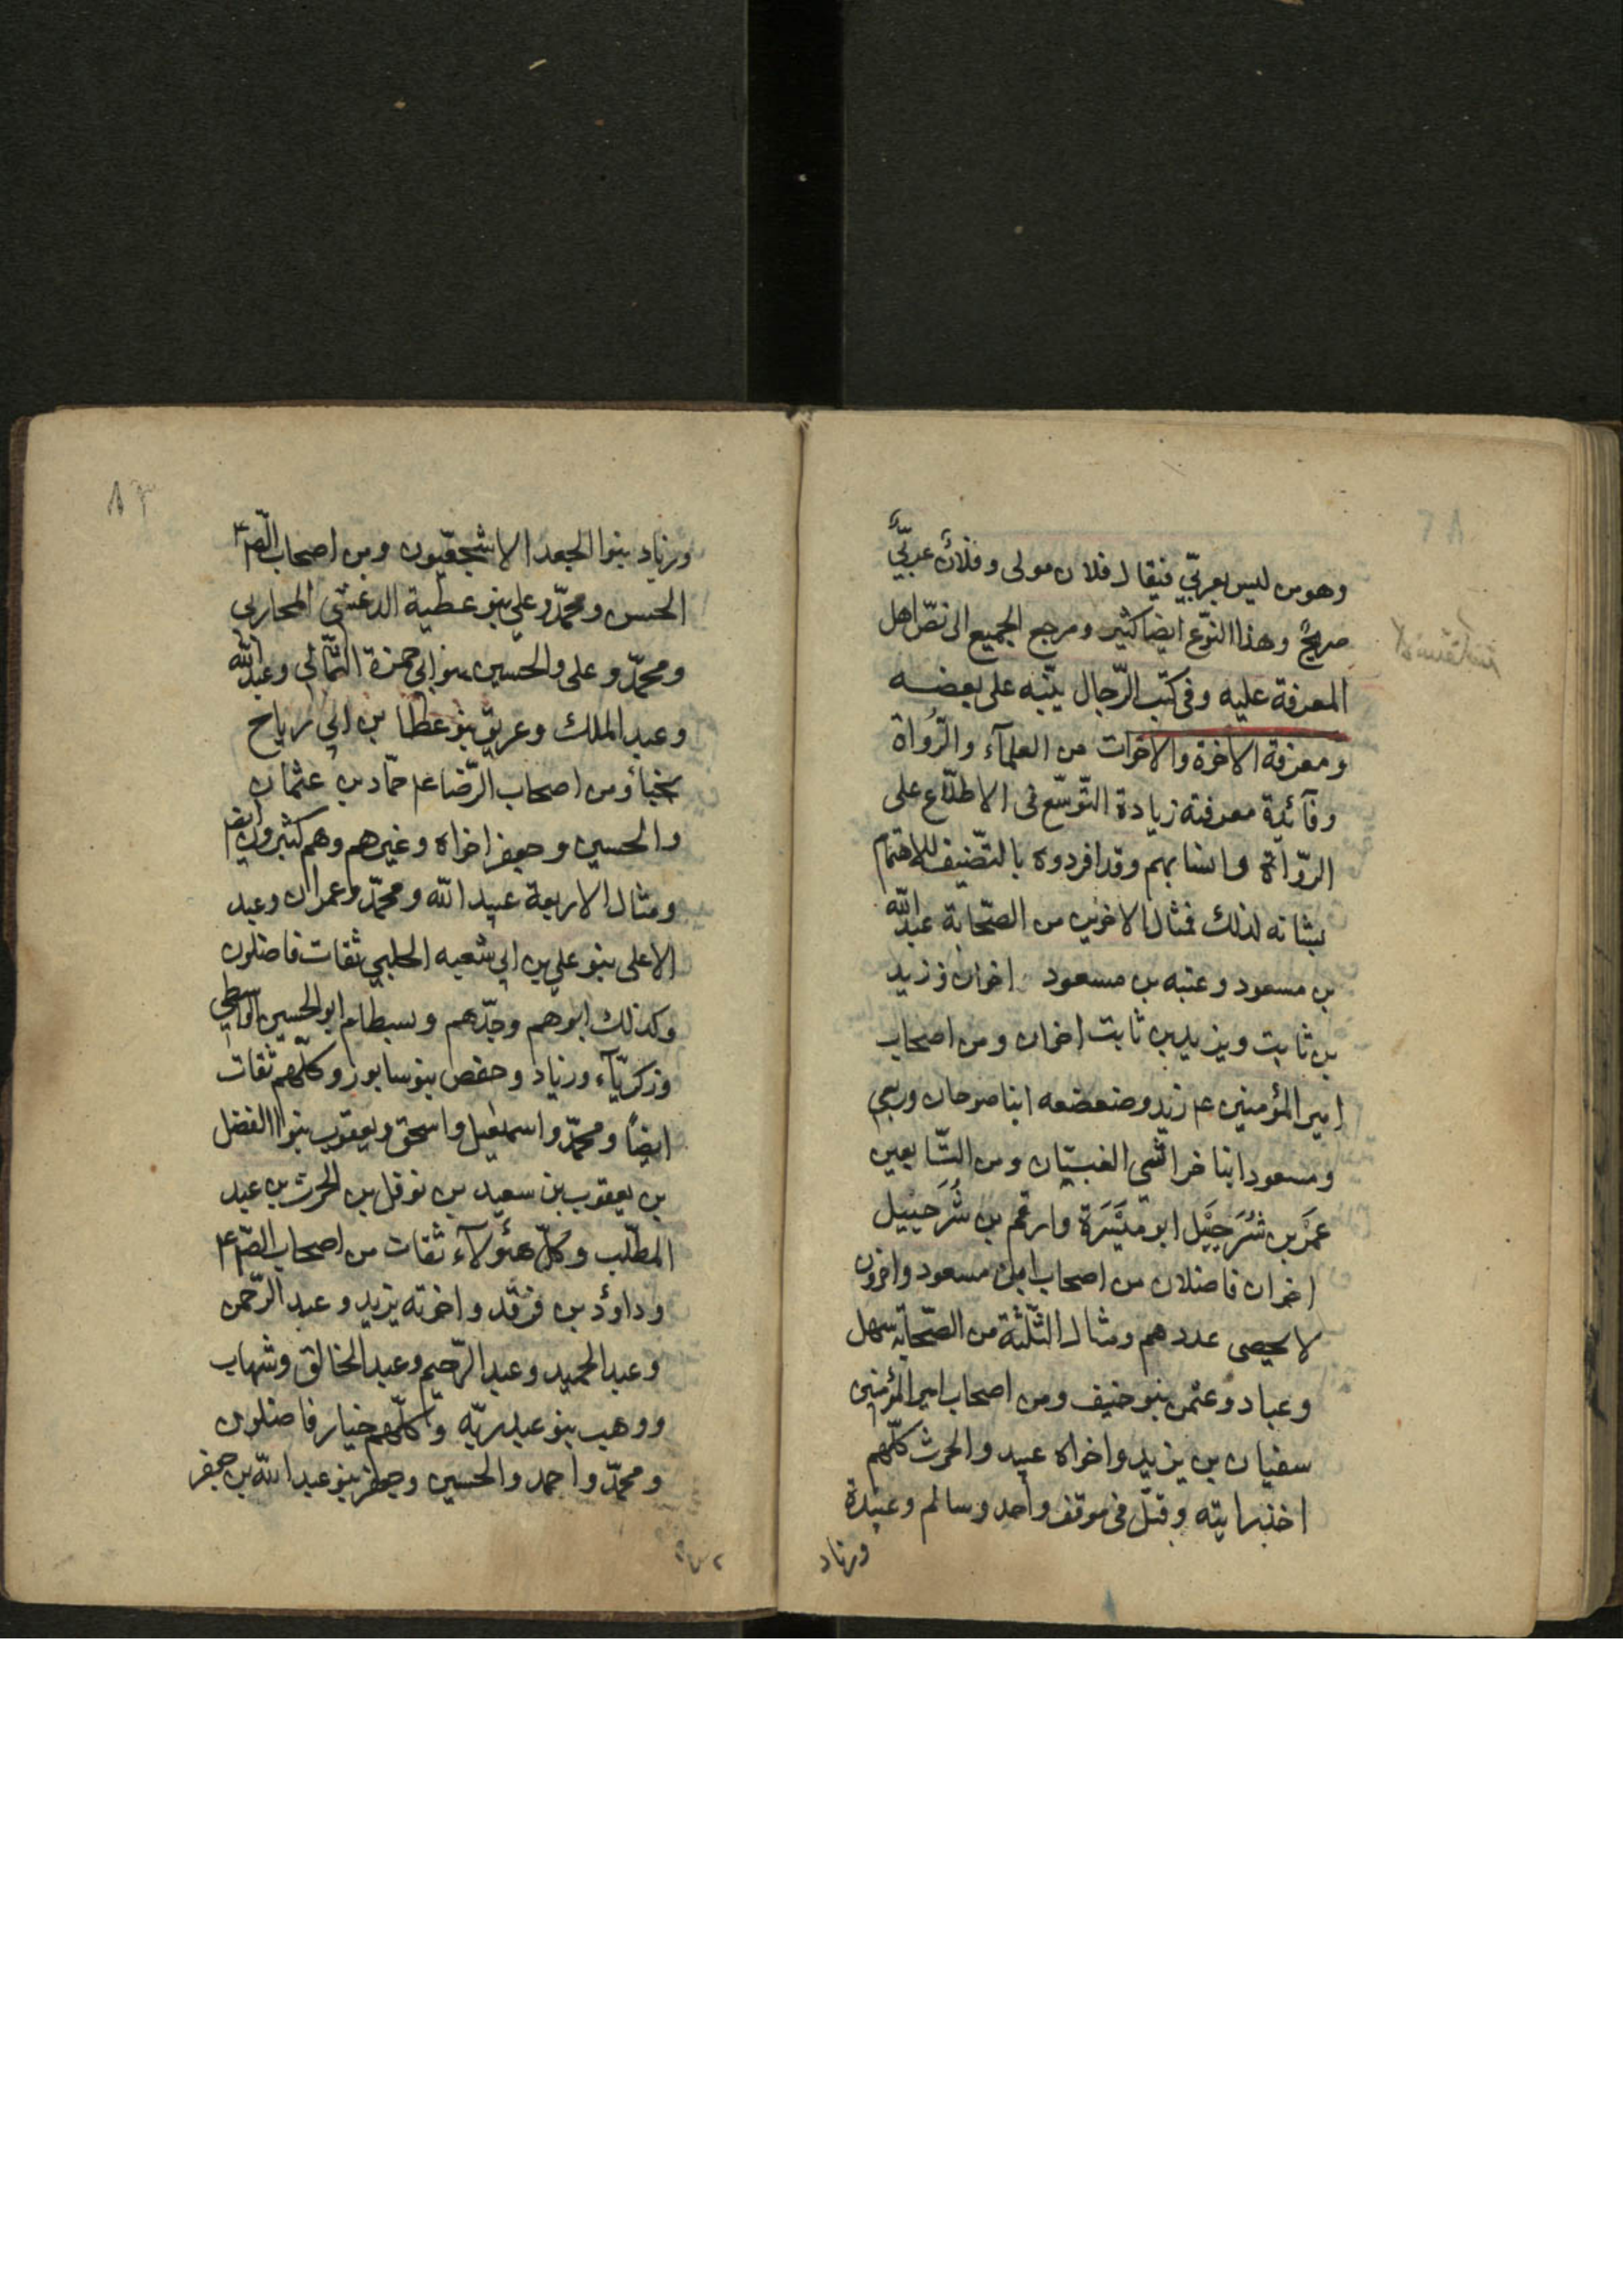 وهو من ليس بعربّي فيقال فلان مولى وفلانٌ عربّيٌ
صريحٌ وهذا النوّع ايضا كثير ومرجع الجميع الى نصّ اهل
المعرفة عليه وفى كتب الرّجال ينّبه على بعضه
ومعرفة الاخوة والاخوات من العلمآء والرُواة
وفآئدة معرفته زيادة التّوسّع فى الاطلّاع على
الروّاة وانسابهم وقد افردوه بالتصّنيف للاهتمام
بشانه لذلك فمثال الاخوين من الصّحابة عبد الله
بن مسعود وعتبه بن مسعود اخوان وزيد
بن ثابت ويزيد بن ثابت اخوان ومن اصحاب
امير المؤمنين ع م زيد وصعصعه ابنا صوحان وربعي
ومسعود ابنا خراشى العبسيّان ومن التّابعين
عَمْرو بن شُرَحبَيْل ابو ميَسَرة وارقم بن شُرَحبيل
اخوان فاضلان من اصحاب ابن مسعود واخرون
لا يحصى عددهم ومثال الثّلثة من الصّحابة سهل
وعباد وعثمن بنو حنيف ومن اصحاب امير المؤمنين
سفيان بن يزيد واخواه عبيد والحرث كلّهم
اخذ رايته وقتل فى موقف واحد وسالم وعبيدة
وزياد
وزياد بنوا الجعد الاشجعّيون ومن اصحاب الصّ ع م
الحسن ومحمّد وعلي بنو عطية الدغشي المحاربى
ومحمّد وعلى والحسين بنو ابى حمزة الثمّالى وعبد الله
وعبد الملك وعريق بنو عطا بن ابي رباح
نجباؤ ومن اصحاب الرّضا ع م حمّاد بن عثمان
والحسين وجعفر اخواه وغيرهم وهم كثيرون ايضا
ومثال الاربعة عبيد الله ومحمّد وعمران وعبد
الاعلى بنو علي بن ابي شعبه الحلبي ثقات فاضلون
وكذلك ابوهم وجدّهم وبسطام ابو الحسين الواسطي
وزكريّآء وزياد وحفص بنو سابور وكلّهم ثقات
ايضاً ومحمّد واسمعيل واسحق ويعقوب بنوا الفضل
بن يعقوب بن سعيد بن نوفل بن الحرث بن عبد
المطلّب وكلّ هؤلآء ثقات من اصحاب الصّ ع م
وداوٗد بن فرقد واخوته يزيد وعبد الرّحمن
وعبد الحميد وعبد الرّحيم وعبد الخالق وشهاب
ووهب بنو عبد ربّه وكلّهم خيار فاضلون
ومحمّد واحمد والحسين وجعفر بنو عبد الله بن جعفر